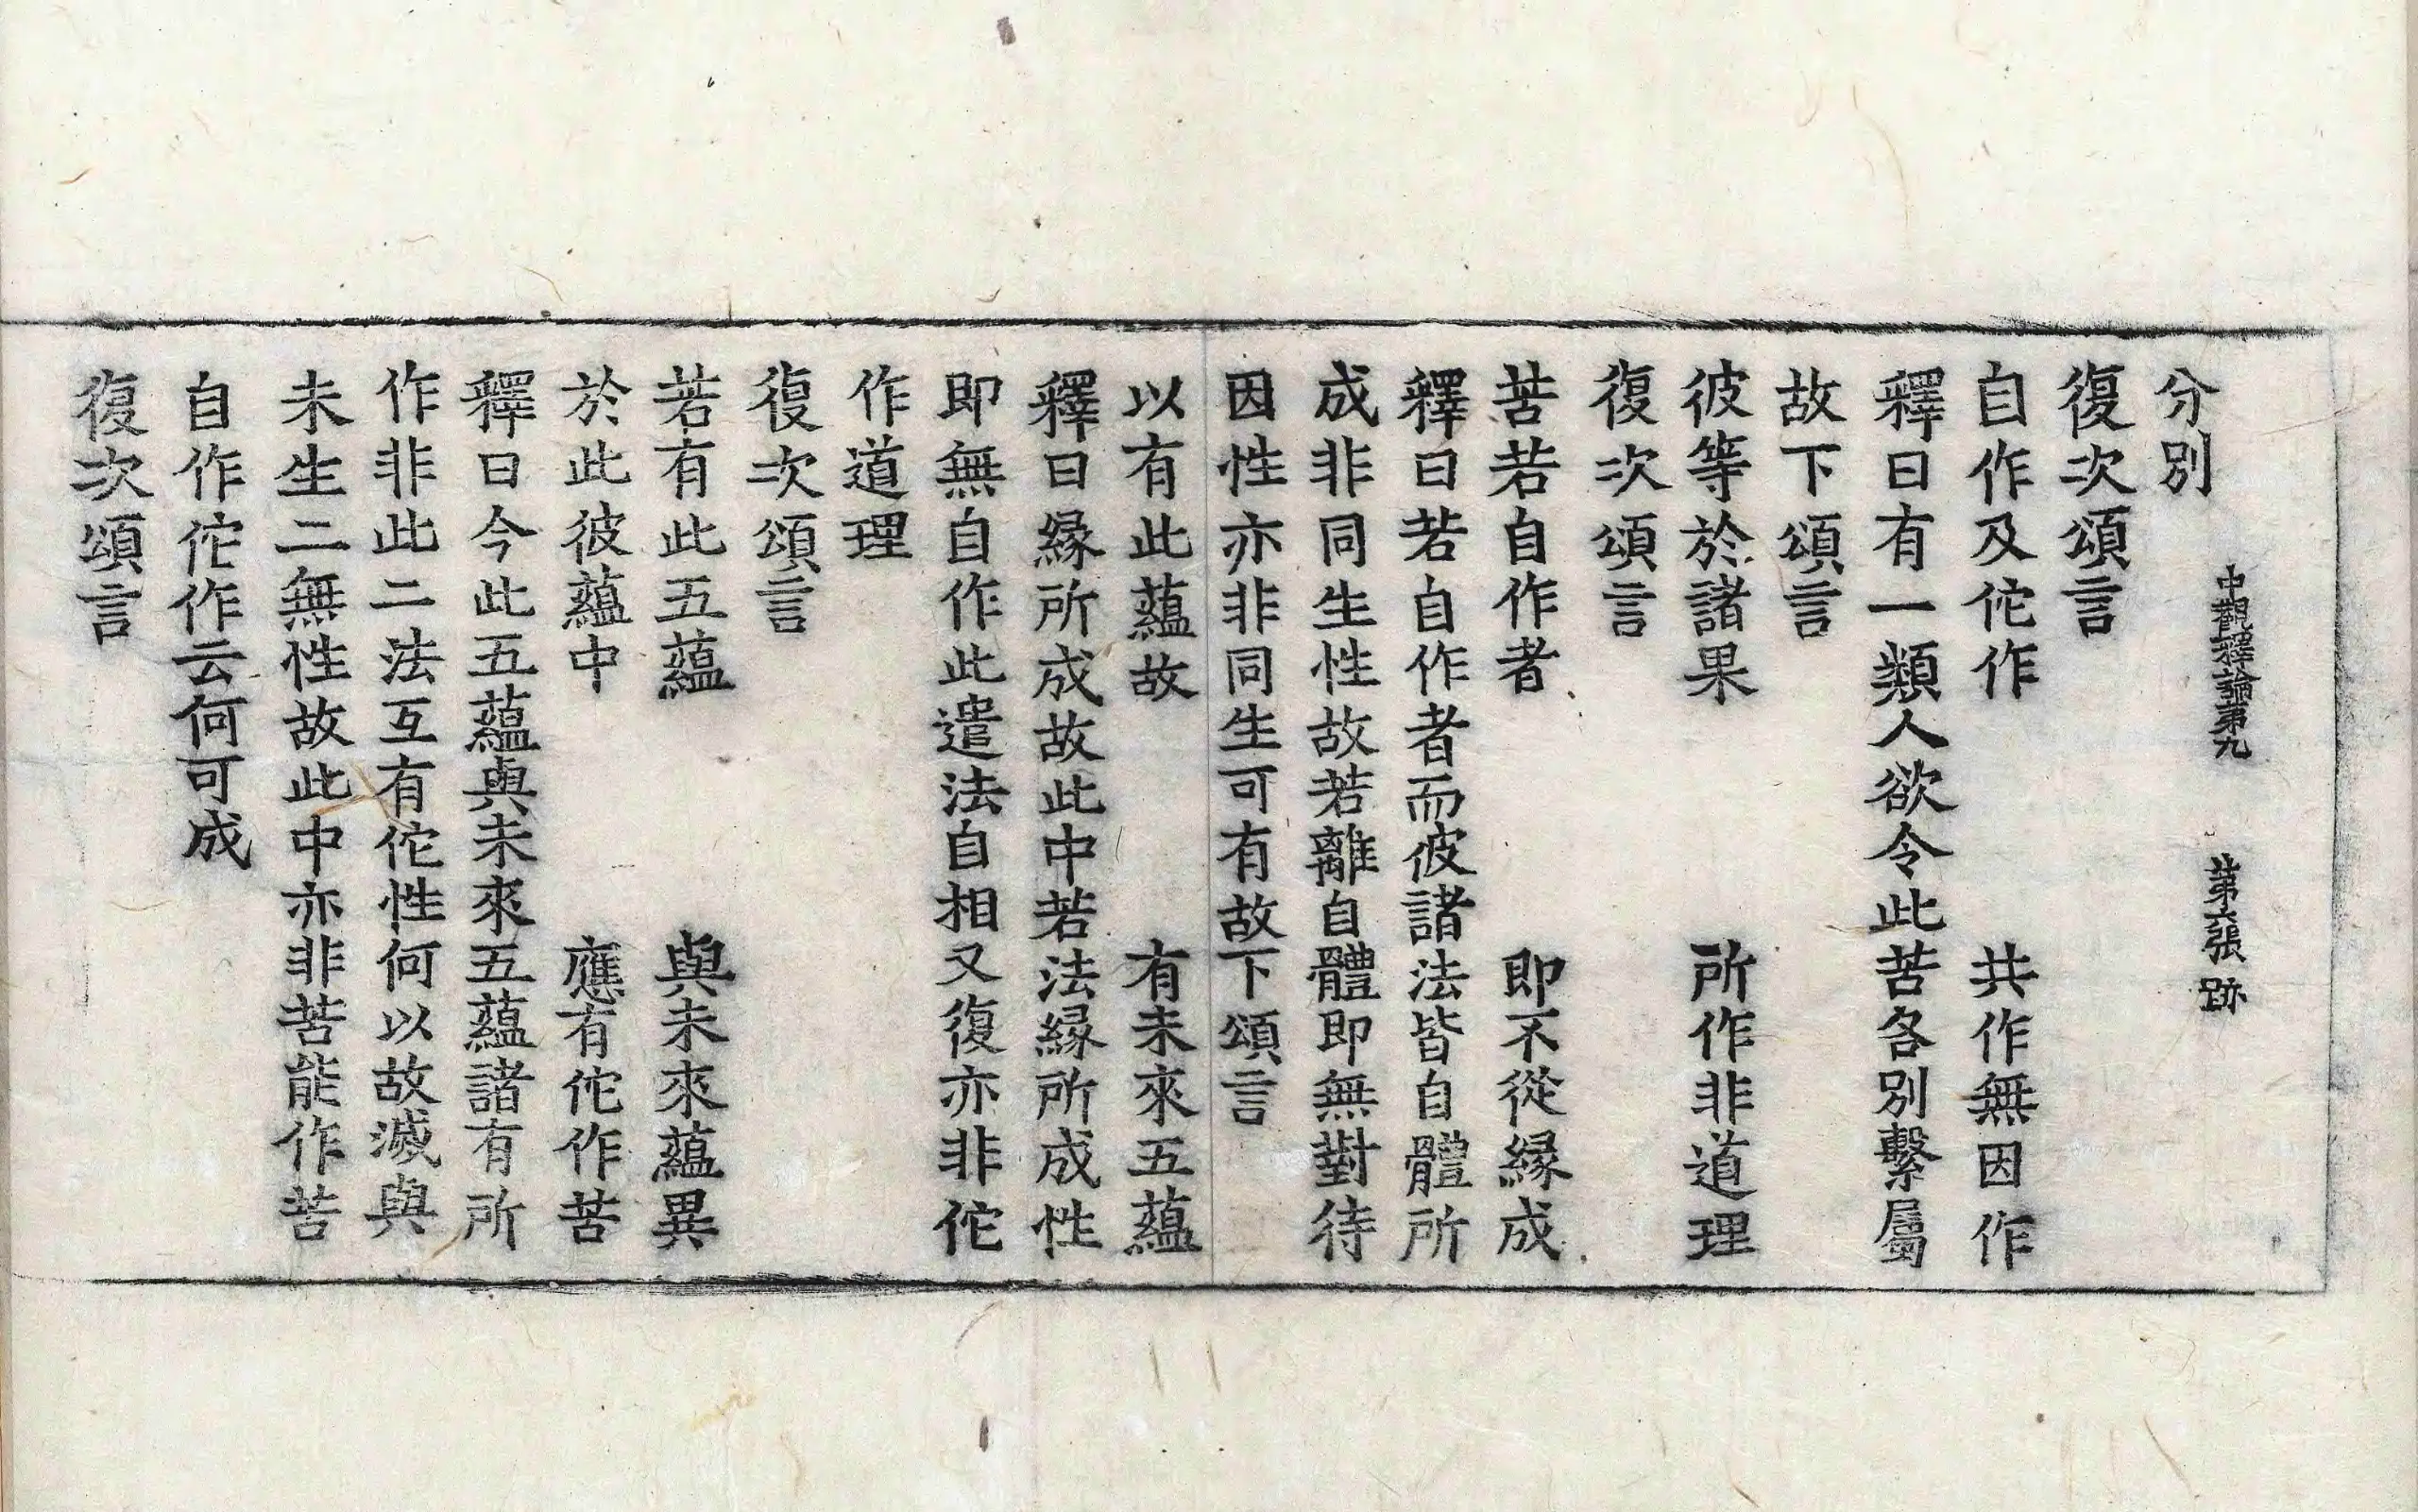 中觀釋論第九 第六張 跡
分別
復次頌言
自作及佗作 共作無因作
釋曰有一類人欲令此苦各別繫屬
故下頌言
彼等於諸果 所作非道理
復次頌言
苦若自作者 即不從緣成
釋曰若自作者而彼諸法皆自體所
成非同生性故若離自體即無對待
因性亦非同生可有故下頌言
以有此蘊故 有未來五蘊
釋曰緣所成故此中若法緣所成性
即無自作此遣法自相又復亦非佗
作道理
復次頌言
若有此五蘊 與未來蘊異
於此彼蘊中 應有佗作苦
釋曰今此五蘊與未來五蘊諸有所
作非此二法互有佗性何以故滅與
未生二無性故此中亦非苦能作苦
自作佗作云何可成
復次頌言